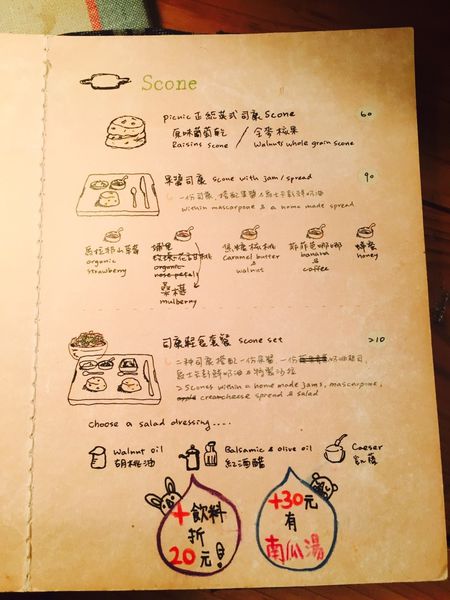 Scone
Picnic 正統英式司康 Scone 60
原味葡萄乾 / 全麥核果
Raisins scone / Walnuts whole grain scone
果醬司康 scone with jam/spread 90
一份司康, 搭配果醬
within mascarpone & a home made spread
organic
strawberry
桑椹
mulberry
焦糖核桃
caramel butter
&
walnut
banana
&
coffee
蜂蜜
honey
司康輕食套餐 scone set 210
二種司康搭配一份果醬, 一份
2 scones within a home made jams, mascarpone,
creamcheese spread & salad
choose a salad dressing....
Walnut oil
胡桃油
Balsamic & olive oil
紅酒醋
Caeser
凱薩
+飲料
折
20元!
+30元
有
南瓜湯